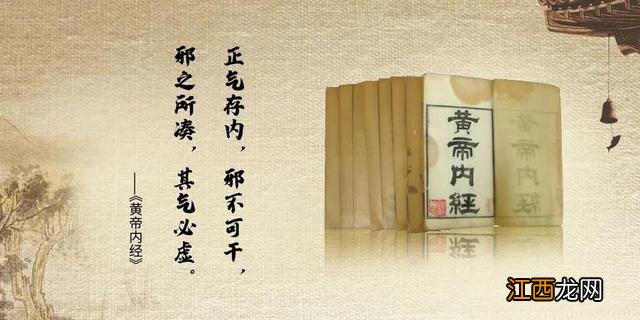 正气存内，邪不可干，
邪之所凑，其气必虚。
——《黄帝内经》
黄帝内经
江西龙网